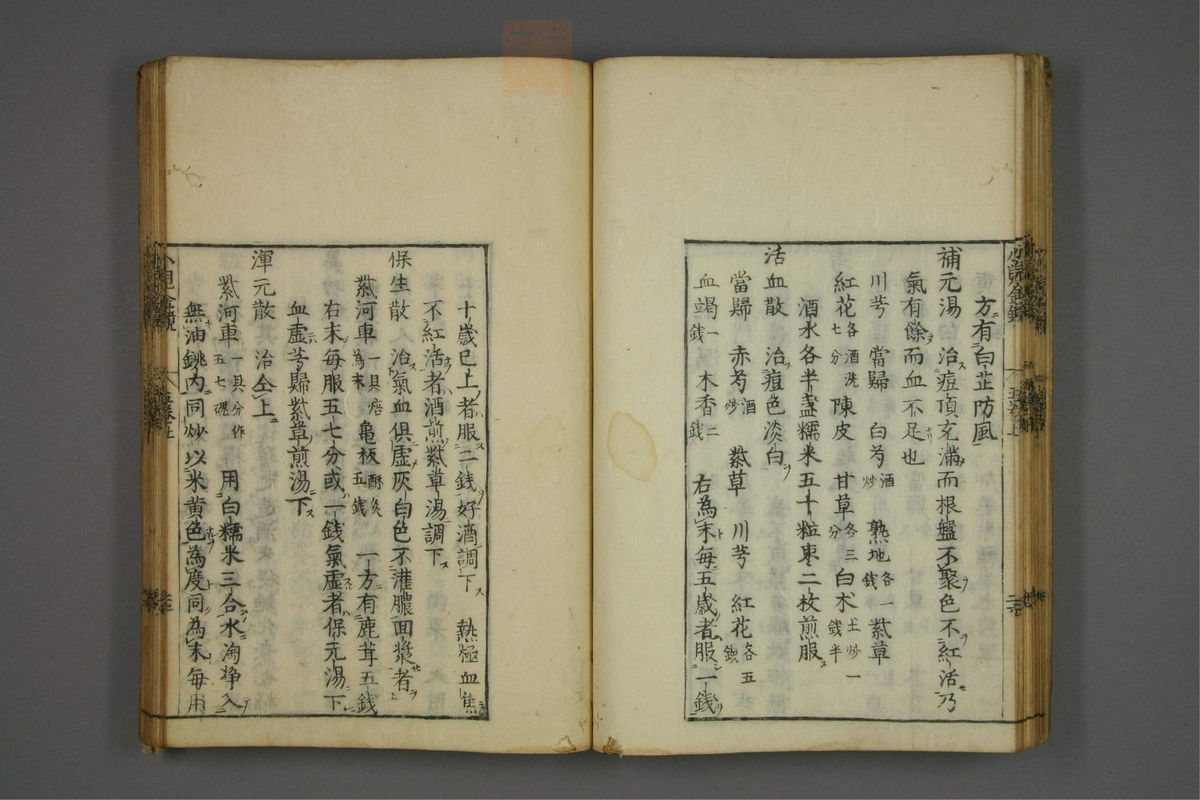 方有白芷防風
補元湯　治痘頂充滿而根盤不聚色不紅活乃
氣有餘而血不足也
川芎　當歸　白芍酒炒　熟地各一錢　紫草
紅花各七分酒洗　陳皮　甘草各三分　白朮土炒一錢半
酒水各半盞糯米五十粒棗二枚煎服
活血散　治痘色淡白
當歸　赤芍酒炒　紫草　川芎　紅花各五錢
血竭一錢　木香二錢　右為末每五歲者服一錢
十歲已上者服二錢好酒調下　熱極血焦
不紅活者酒煎紫草湯調下
保生散　治氣血俱虛灰白色不灌膿面漿者
紫河車一具焙為末　龜板酥炙五錢　一方有鹿茸五錢
右末每服五七分或一錢氣虛者保元湯下
血虛芎歸紫草煎湯下
渾元散　治仝上
紫河車一具分作五七塊　用白糯米三合水淘掙入
無油銚內同炒以米黃色為度同為末每用